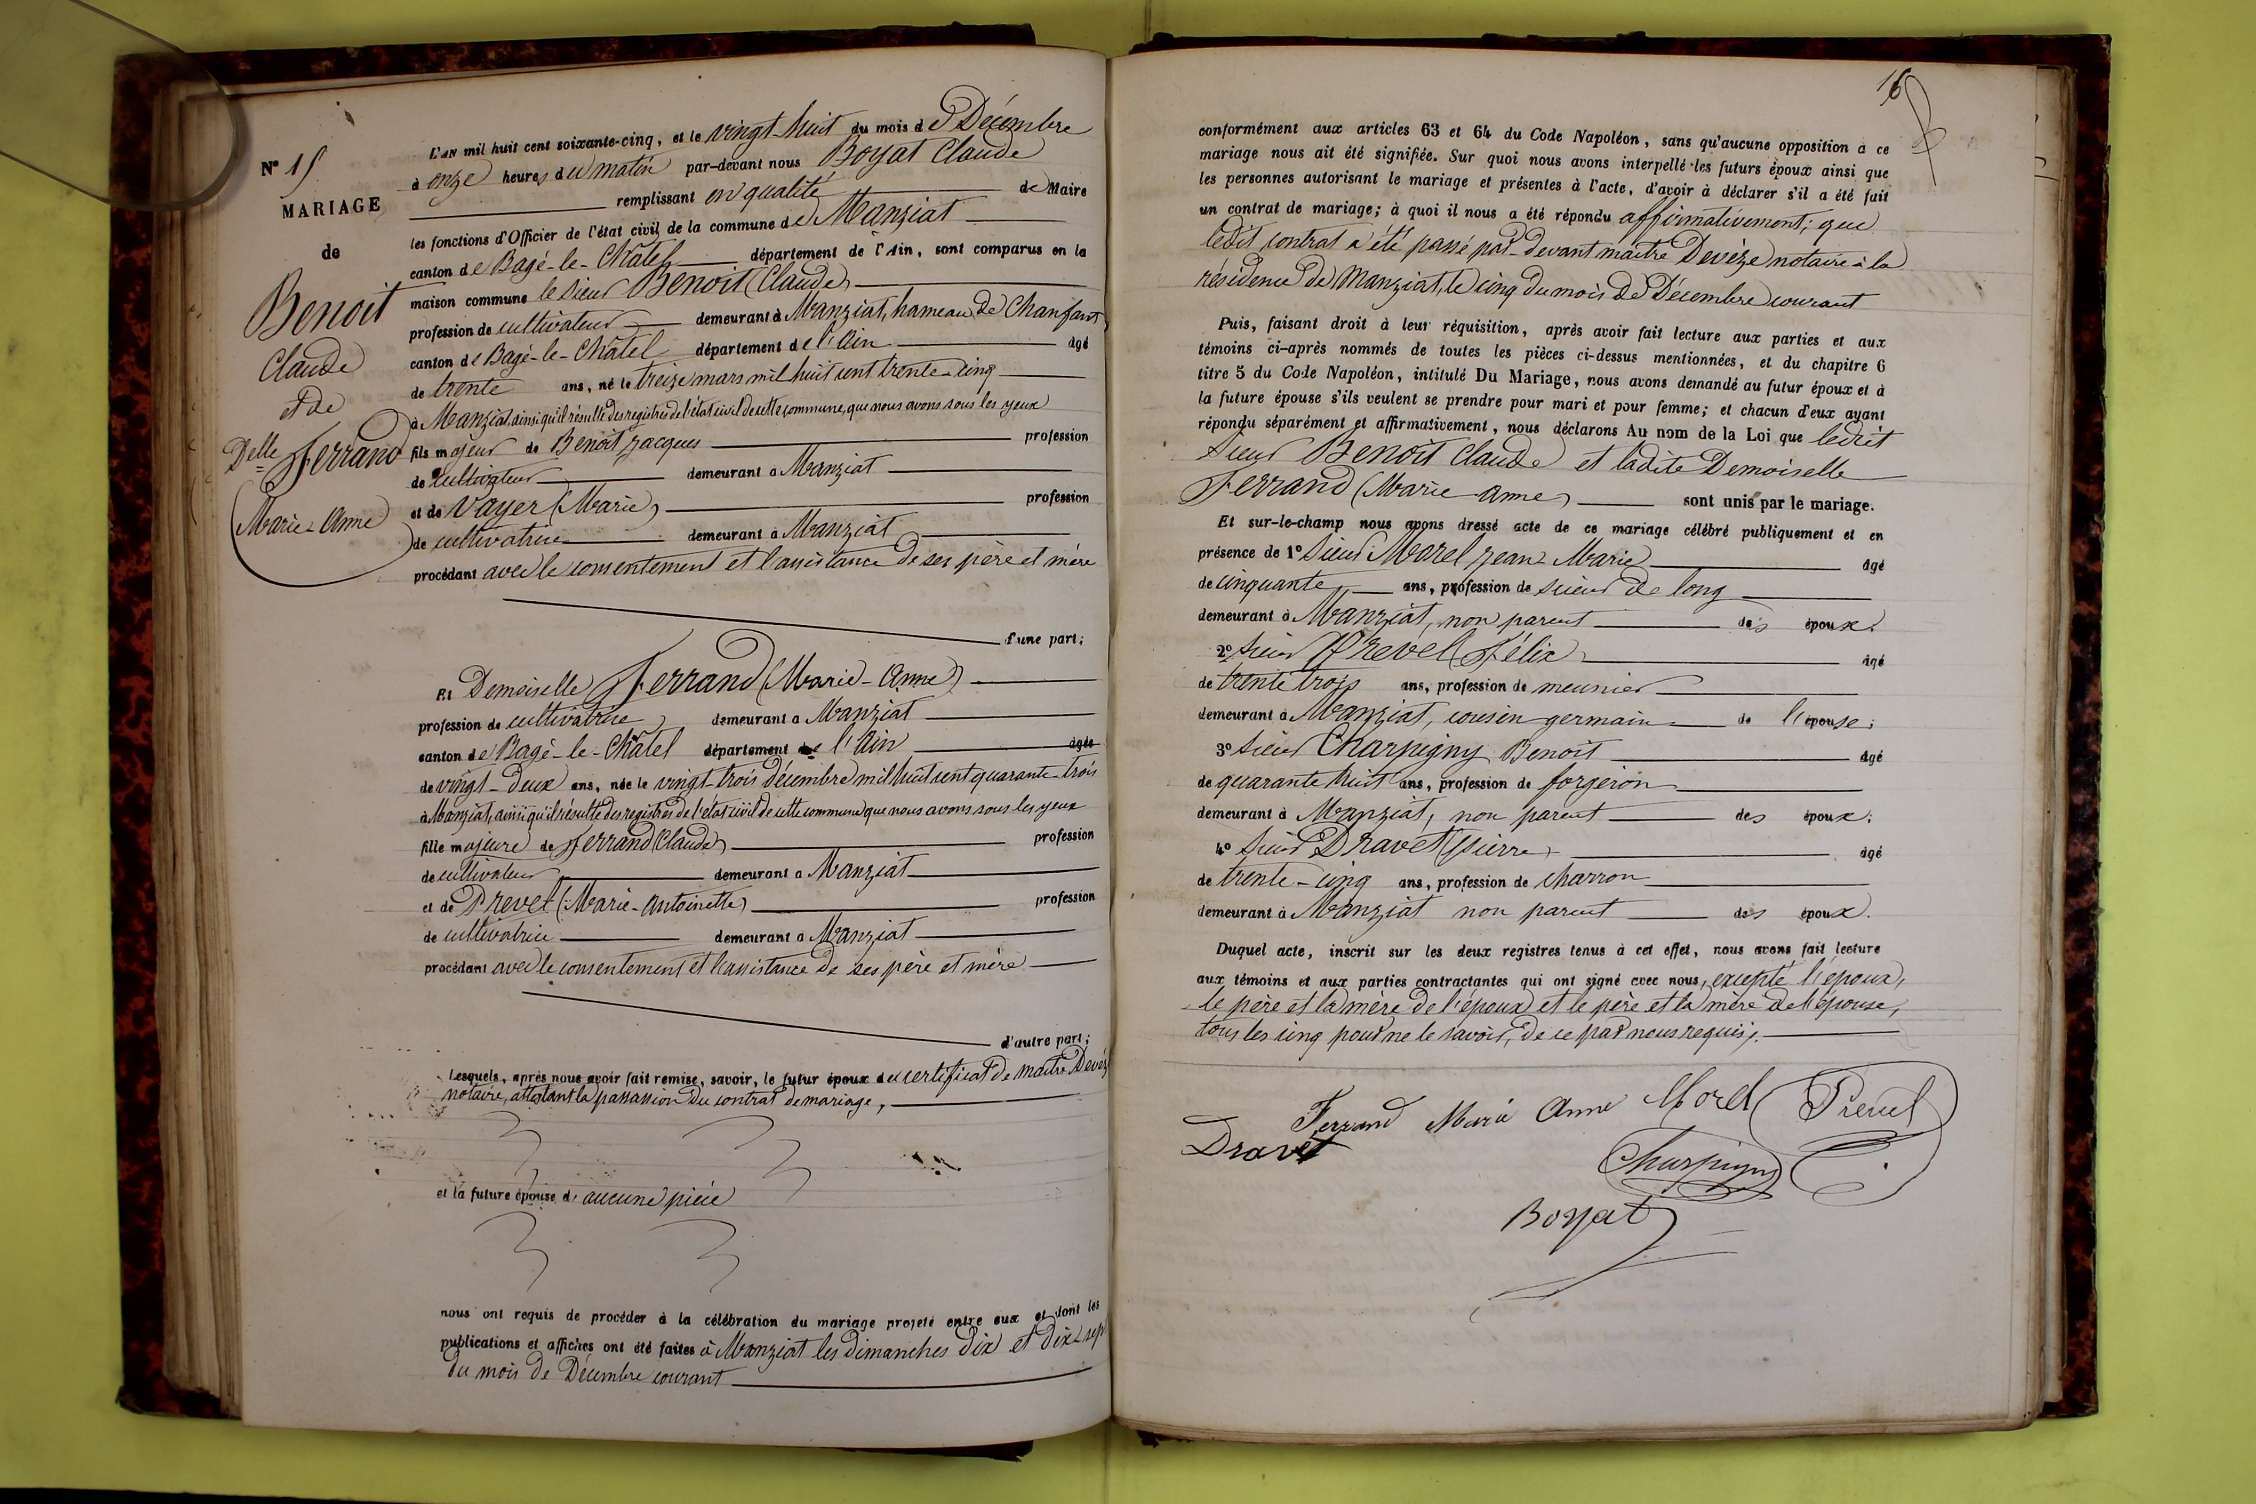 N° 15
MARIAGE
de
Benoit
Claude
et de
Delle Ferrand
(Marie-Anne)
L'AN mil huit cent soixante-cinq, et le vingt-huit du mois de Décembre
à onze heures du matin par-devant nous Boyat Claude
remplissant en qualité de Maire
les fonctions d'Officier de l'état civil de la commune de Manziat
canton de Bagé-le-Châtel département de l'Ain, sont comparus en la
maison commune le sieur Benoit (Claude)
profession de cultivateur demeurant à Manziat, hameau de Chanfant
canton de Bagé-le-Châtel département de l'Ain âgé
de trente ans, né le treize mars mil huit cent trente-cinq
à Manziat, ainsi qu'il résulte des registres de l'état civil de cette commune, que nous avons sous les yeux
fils majeur de Benoit Jacques profession
de cultivateur demeurant à Manziat
et de Vayer (Marie) profession
de cultivatrice demeurant à Manziat
procédant avec le consentement et l'assistance de ses père et mère
d'une part;
Et Demoiselle Ferrand (Marie-Anne)
profession de cultivatrice demeurant à Manziat
canton de Bagé-le-Châtel département de l'Ain âgée
de vingt-deux ans, née le vingt-trois décembre mil huit cent quarante-trois
à Manziat, ainsi qu'il résulte des registres de l'état civil de cette commune que nous avons sous les yeux
fille majeure de Ferrand (Claude) profession
de cultivateur demeurant à Manziat
et de Prevel (Marie-Antoinette) profession
de cultivatrice demeurant à Manziat
procédant avec le consentement et l'assistance de ses père et mère
d'autre part;
Lesquels, après nous avoir fait remise, savoir, le futur époux du certificat de maître Devèze
notaire, attestant la passassion du contrat de mariage,
et la future épouse d'aucune pièce
nous ont requis de procéder à la célébration du mariage projeté entre eux et dont les
publications et affiches ont été faites à Manziat les dimanches dix et dix-sept
du mois de Décembre courant
16
conformément aux articles 63 et 64 du Code Napoléon, sans qu'aucune opposition à ce
mariage nous ait été signifiée. Sur quoi nous avons interpellé les futurs époux ainsi que
les personnes autorisant le mariage et présentes à l'acte, d'avoir à déclarer s'il a été fait
un contrat de mariage; à quoi il nous a été répondu affirmativement; que
ledit contrat a été passé par-devant maître Devèze notaire à la
résidence de Manziat, le cinq du mois de Décembre courant
Puis, faisant droit à leur réquisition, après avoir fait lecture aux parties et aux
témoins ci-après nommés de toutes les pièces ci-dessus mentionnées, et du chapitre 6
titre 5 du Code Napoléon, intitulé Du Mariage, nous avons demandé au futur époux et à
la future épouse s'ils veulent se prendre pour mari et pour femme; et chacun d'eux ayant
répondu séparément et affirmativement, nous déclarons Au nom de la Loi que ledit
sieur Benoit Claude et ladite Demoiselle
Ferrand (Marie-Anne) sont unis par le mariage.
Et sur-le-champ nous avons dressé acte de ce mariage célébré publiquement et en
présence de 1° sieur Morel Jean-Marie âgé
de cinquante ans, profession de scieur de long
demeurant à Manziat, non parent des époux.
2° sieur Prevel (Félix) âgé
de trente trois ans, profession de meunier
demeurant à Manziat, cousin germain de l'épouse;
3° sieur Charpigny Benoit âgé
de quarante huit ans, profession de forgeron
demeurant à Manziat, non parent des époux;
4° sieur Dravet (Pierre) âgé
de trente-cinq ans, profession de charron
demeurant à Manziat non parent des époux.
Duquel acte, inscrit sur les deux registres tenus à cet effet, nous avons fait lecture
aux témoins et aux parties contractantes qui ont signé avec nous, excepté l'époux,
le père et la mère de l'époux et le père et la mère de l'épouse,
tous les cinq pour ne le savoir, de ce par nous requis.
Ferrand Marie Anne Morel Prevel
Dravet
Charpigny
Boyat